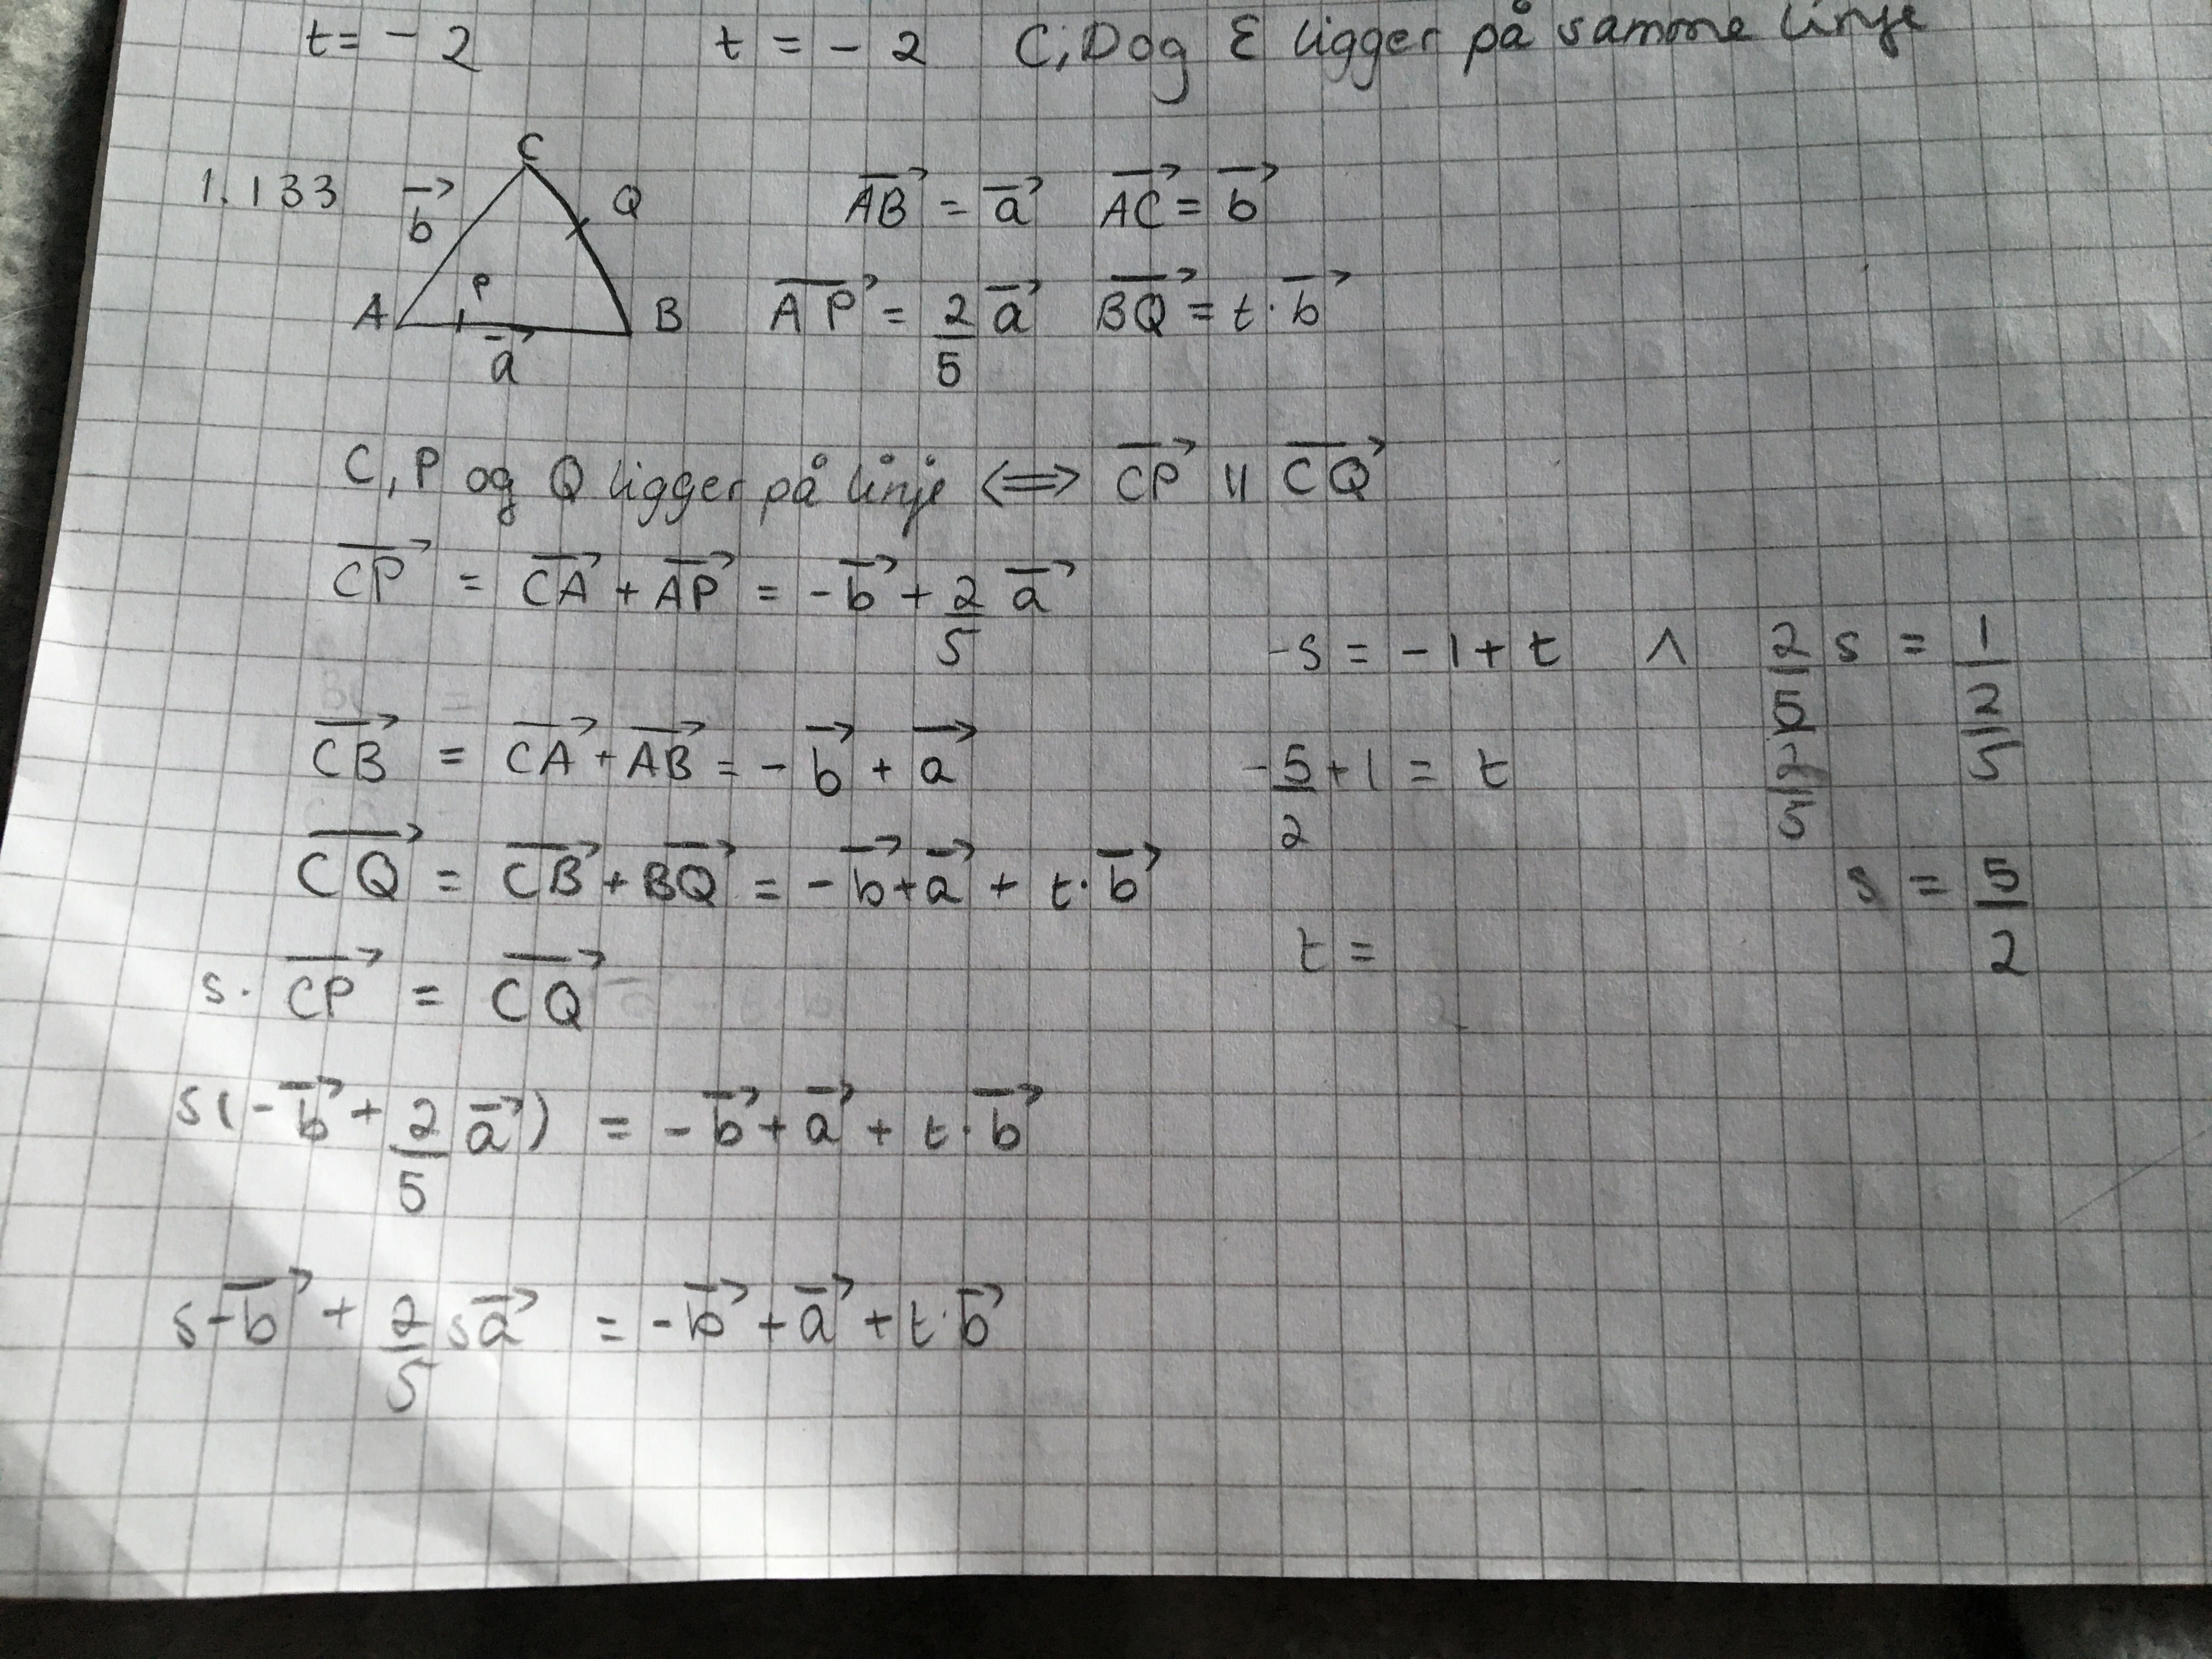 t = - 2 t = - 2 C, D og E ligger på samme linje
1.133 C Q b⃗ A P B a⃗
AB⃗ = a⃗ AC⃗ = b⃗
AP⃗ = 2/5 a⃗ BQ⃗ = t · b⃗
C, P og Q ligger på linje ⟺ CP⃗ || CQ⃗
CP⃗ = CA⃗ + AP⃗ = -b⃗ + 2/5 a⃗
CB⃗ = CA⃗ + AB⃗ = -b⃗ + a⃗
CQ⃗ = CB⃗ + BQ⃗ = -b⃗ + a⃗ + t · b⃗
s · CP⃗ = CQ⃗
s(-b⃗ + 2/5 a⃗) = -b⃗ + a⃗ + t · b⃗
s-b⃗ + 2/5 sa⃗ = -b⃗ + a⃗ + t · b⃗
-s = -1 + t ∧ 2/5 s / 2/5 = 1 / 2/5
-5/2 + 1 = t
s = 5/2
t =